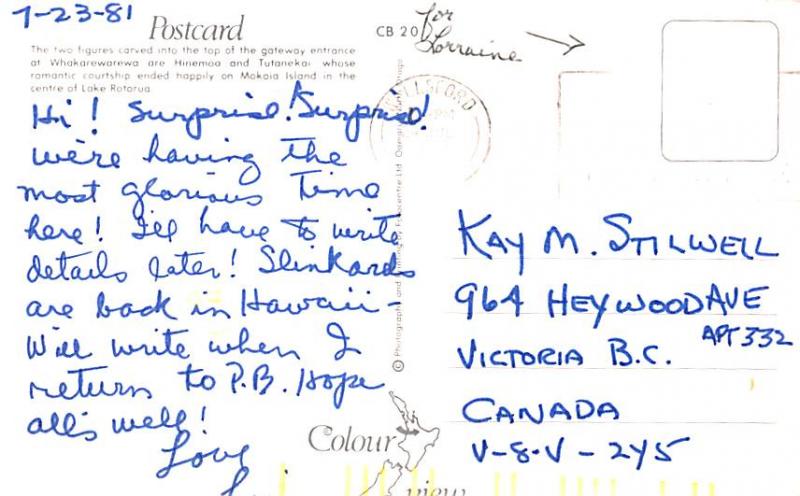 7-23-81
Postcard
CB 20
for
Lorraine
The two figures carved into the top of the gateway entrance
at Whakarewarewa are Hinemoa and Tutanekai whose
romantic courtship ended happily on Mokoia Island in the
centre of Lake Rotorua
WELLSFORD
Hi! Surprise! Surprise!
we're having the
most glorious time
here! I'll have to write
details later! Slinkards
are back in Hawaii -
Will write when I
return to P.B. Hope
all's well!
Love
© Photography and
KAY M. STILWELL
964 HEYWOOD AVE
APT 332
VICTORIA B.C.
CANADA
V-8-V-2Y5
Colour
view